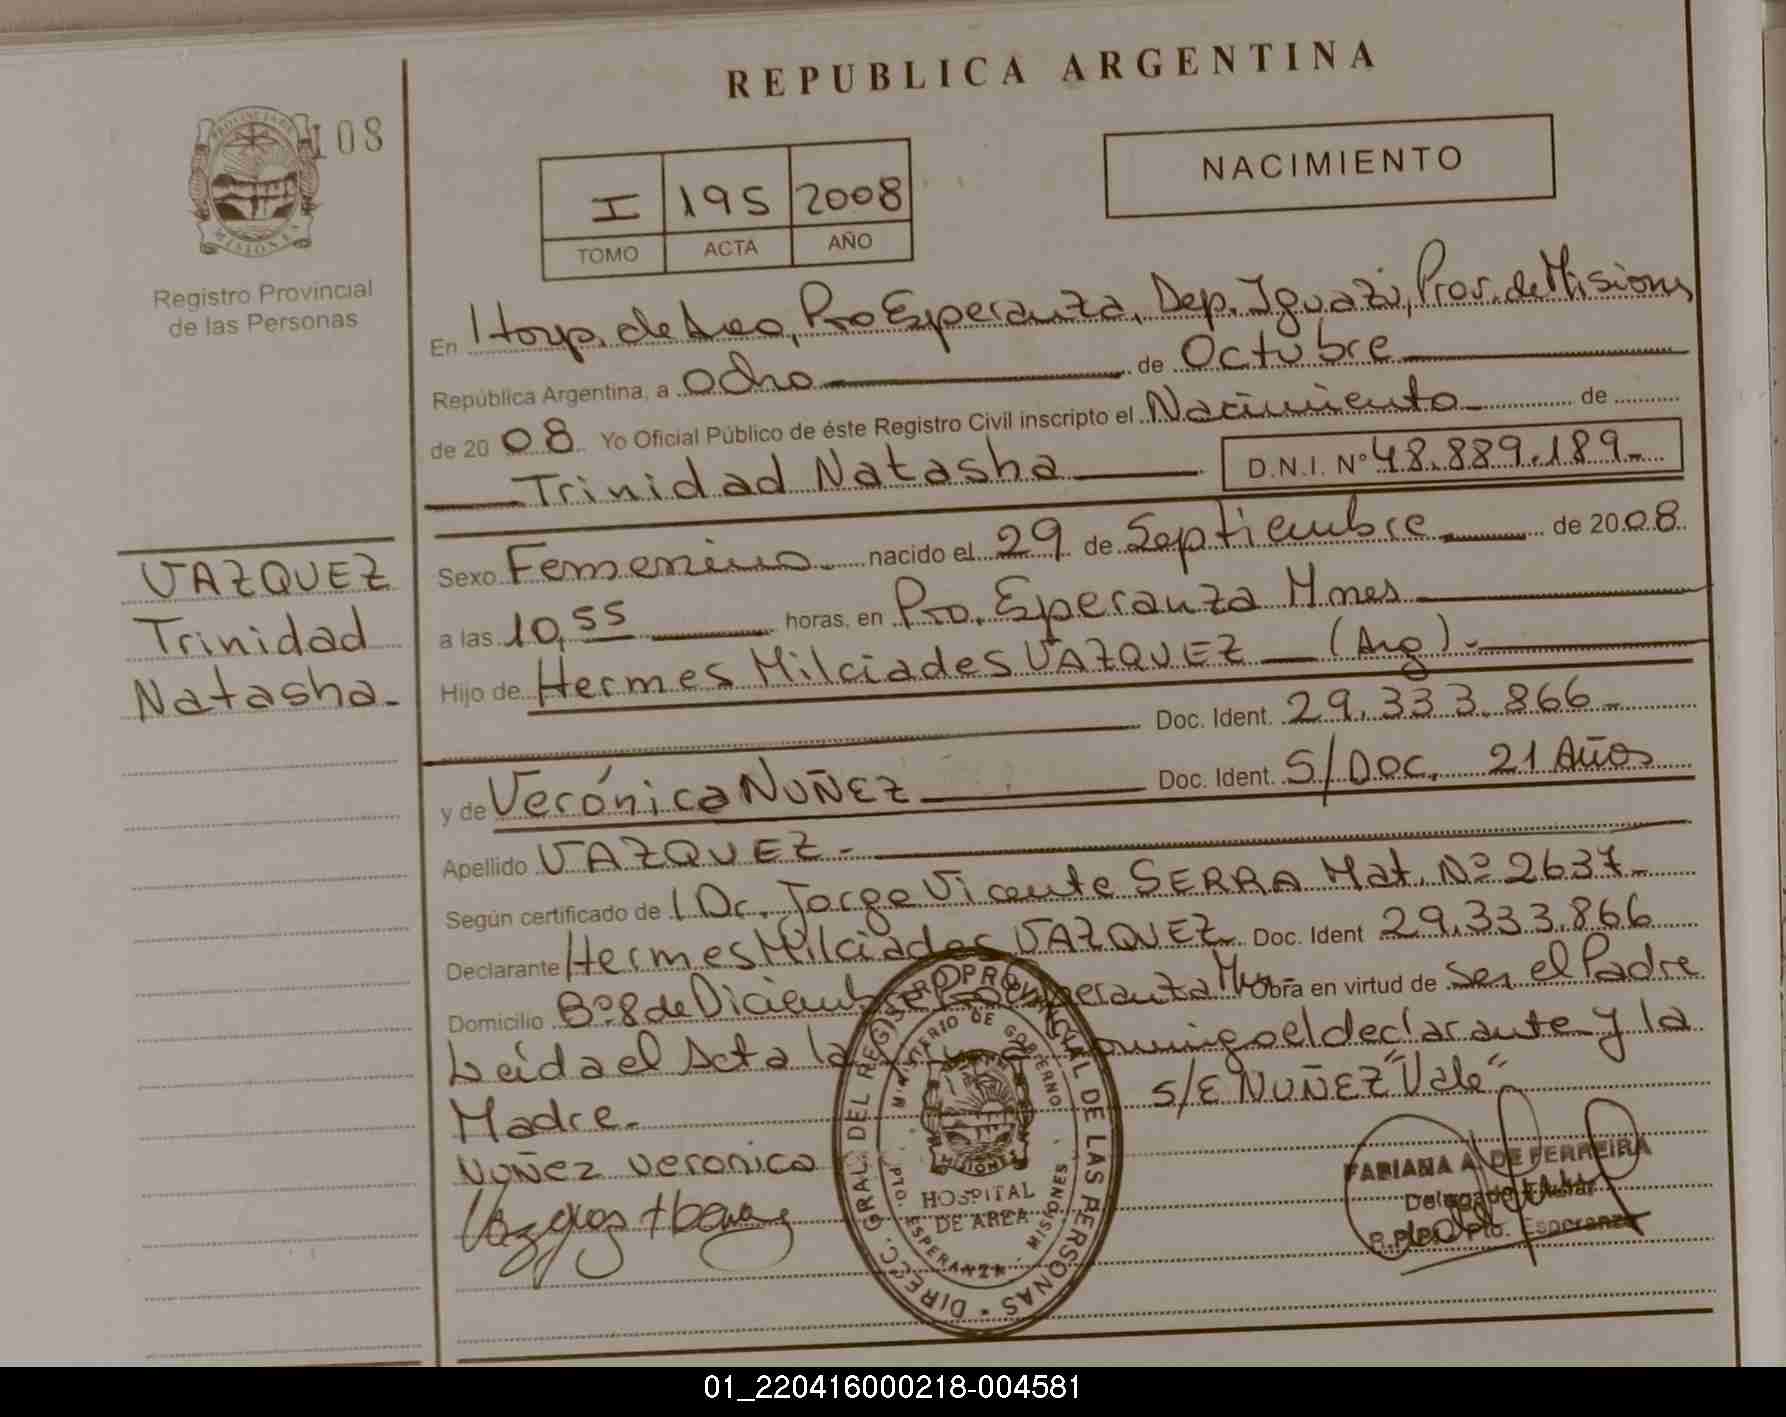 REPUBLICA ARGENTINA
108
PROVINCIA DE
MISIONES
Registro Provincial
de las Personas
I 195 2008
TOMO ACTA AÑO
NACIMIENTO
En Hosp. de Area, Pto Esperanza, Dep. Iguazú, Prov. de Misiones
República Argentina, a ocho de Octubre
de 2008 Yo Oficial Público de éste Registro Civil inscripto el Nacimiento de
Trinidad Natasha D.N.I. Nº 48.889.189-
VAZQUEZ
Trinidad
Natasha-
Sexo Femenino nacido el 29 de Septiembre de 2008
a las 10,55 horas, en Pto. Esperanza Mnes
Hijo de Hermes Milciades VAZQUEZ (Arg)-
Doc. Ident. 29.333.866-
y de Verónica NUÑEZ Doc. Ident. S/Doc. 21 Años
Apellido VAZQUEZ-
Según certificado de Dr. Jorge Vicente SERRA Mat. Nº 2637-
Declarante Hermes Milciades VAZQUEZ Doc. Ident 29.333.866
Domicilio Bº 8 de Obra en virtud de Ser el Padre
Leída el Acta la el declarante y la
Madre. S/E NUÑEZ "Vale"-
Nuñez veronica
DIRECC. GRAL. DEL REGISTRO PROVINCIAL DE LAS PERSONAS
MINISTERIO DE GOBIERNO
MISIONES
HOSPITAL
DE AREA
PTO. ESPERANZA - MISIONES
FABIANA A. DE FERREIRA
Delegada Titular
R.P.P. Pto. Esperanza
01_220416000218-004581